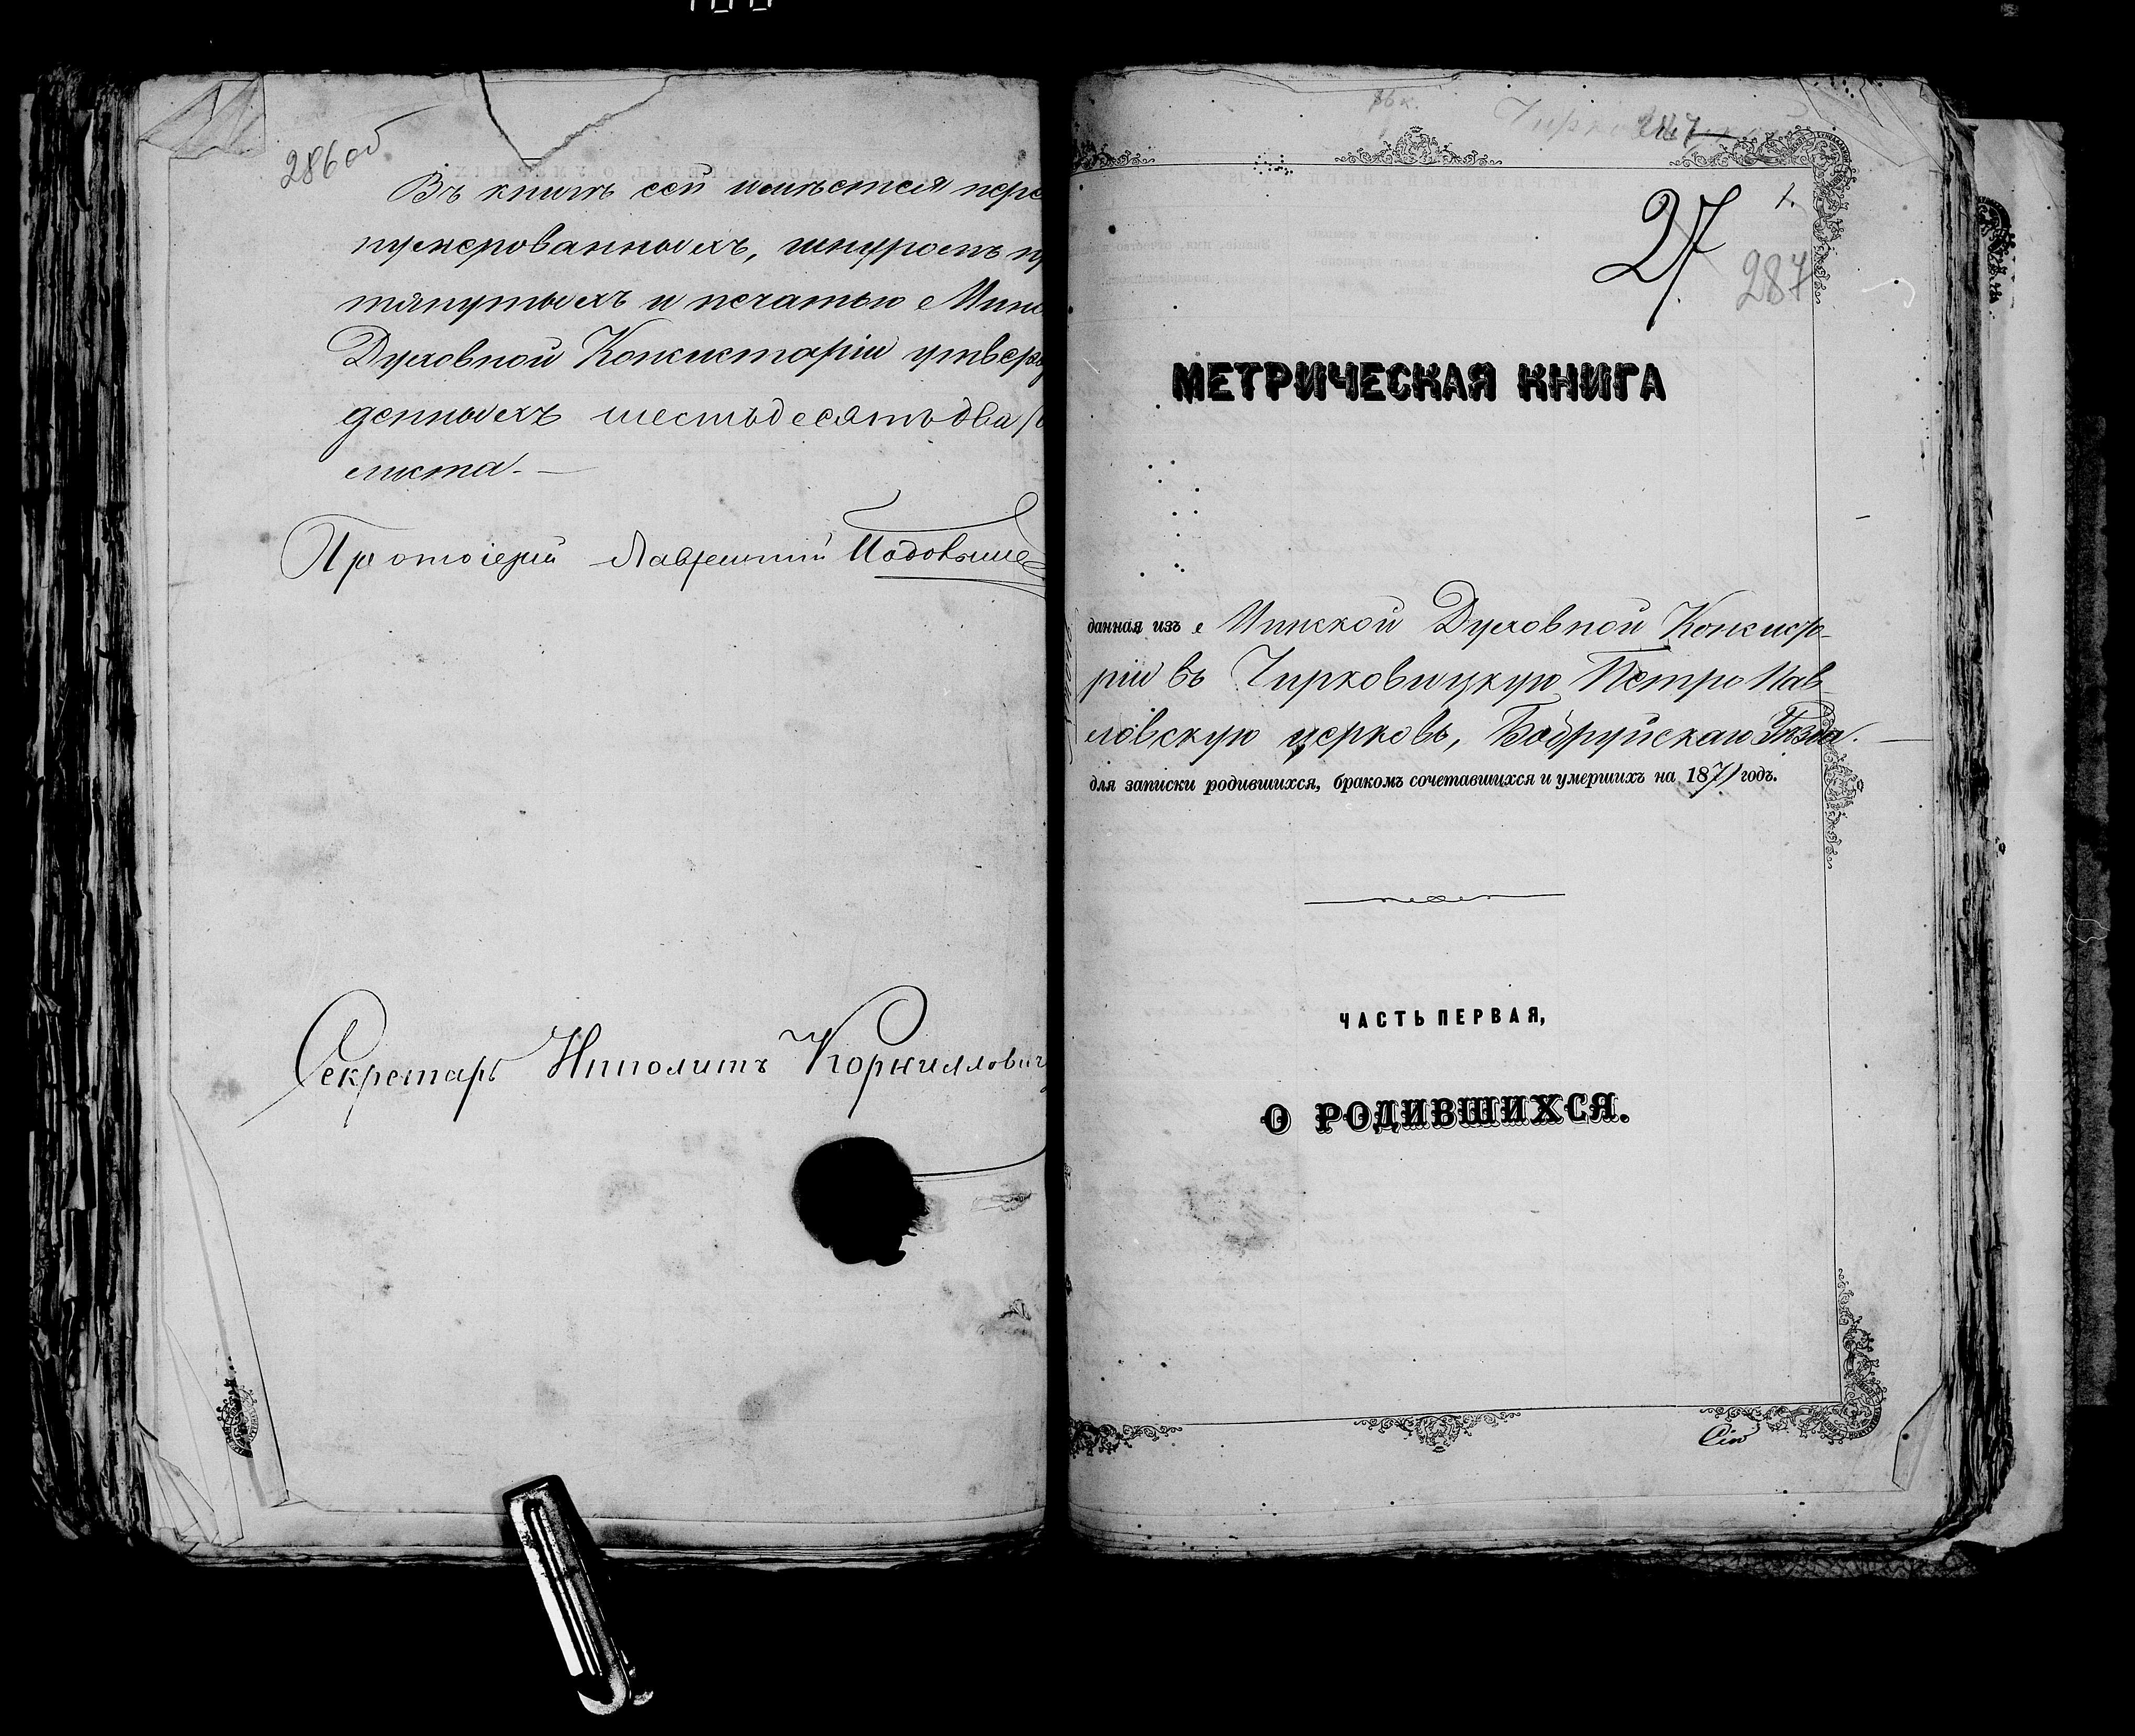 286 об
Въ книгѣ сей имѣется пере
нумерованныхъ, шнуромъ пр
тянутыхъ и печатью Минс
Духовной Консисторіи утверж
денныхъ шестьдесятъ два
листа. —
Протоіерей Лаврентій
Секретарь Ипполитъ Корнилович
287
27
1.
287
МЕТРИЧЕСКАЯ КНИГА
данная изъ Минской Духовной Консисто-
ріи въ Чирковицкую Петро Пав-
ловскую церковь, Бобруйскаго Уѣзда. —
для записки родившихся, бракомъ сочетавшихся и умершихъ на 1871 годъ.
ЧАСТЬ ПЕРВАЯ,
О РОДИВШИХСЯ.